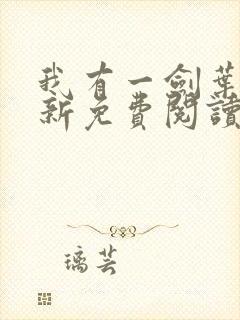 我有一劍葉
新免費閱讀
璃芸